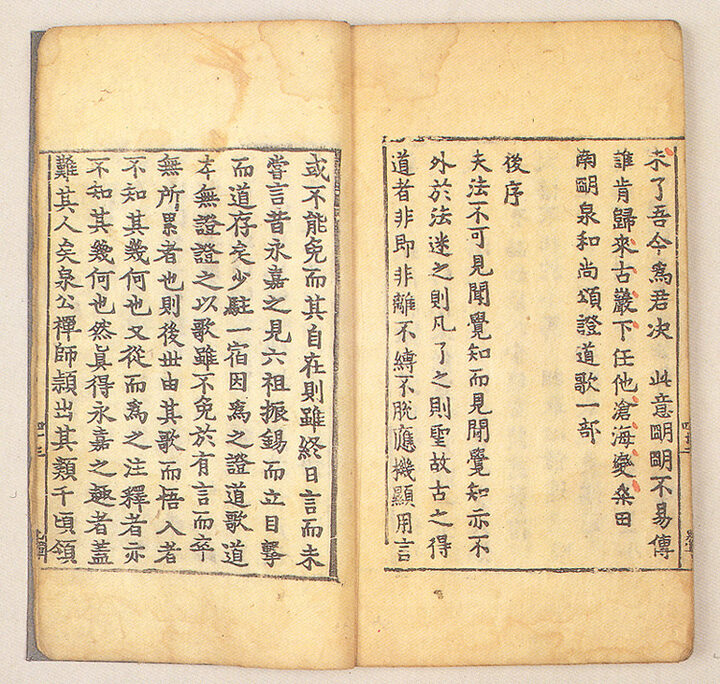 未了吾今爲君決 此意明明不易傳
誰肯歸來古巖下任他滄海變桑田
南明泉和尚頌證道歌一部
後序
夫法不可見聞覺知而見聞覺知亦不
外於法迷之則凡了之則聖故古之得
道者非即非離不縛不脫應機顯用言
或不能免而其自在則雖終日言而未
嘗言昔永嘉之見六祖振錫而立目擊
而道存矣少駐一宿因爲之證道歌道
本無證證之以歌雖不免於有言而卒
無所累者也則後世由其歌而悟入者
不知其幾何也又從而爲之注釋者亦
不知其幾何也然眞得永嘉之趣者蓋
難其人矣泉公禪師穎出其類千頃領
四十三